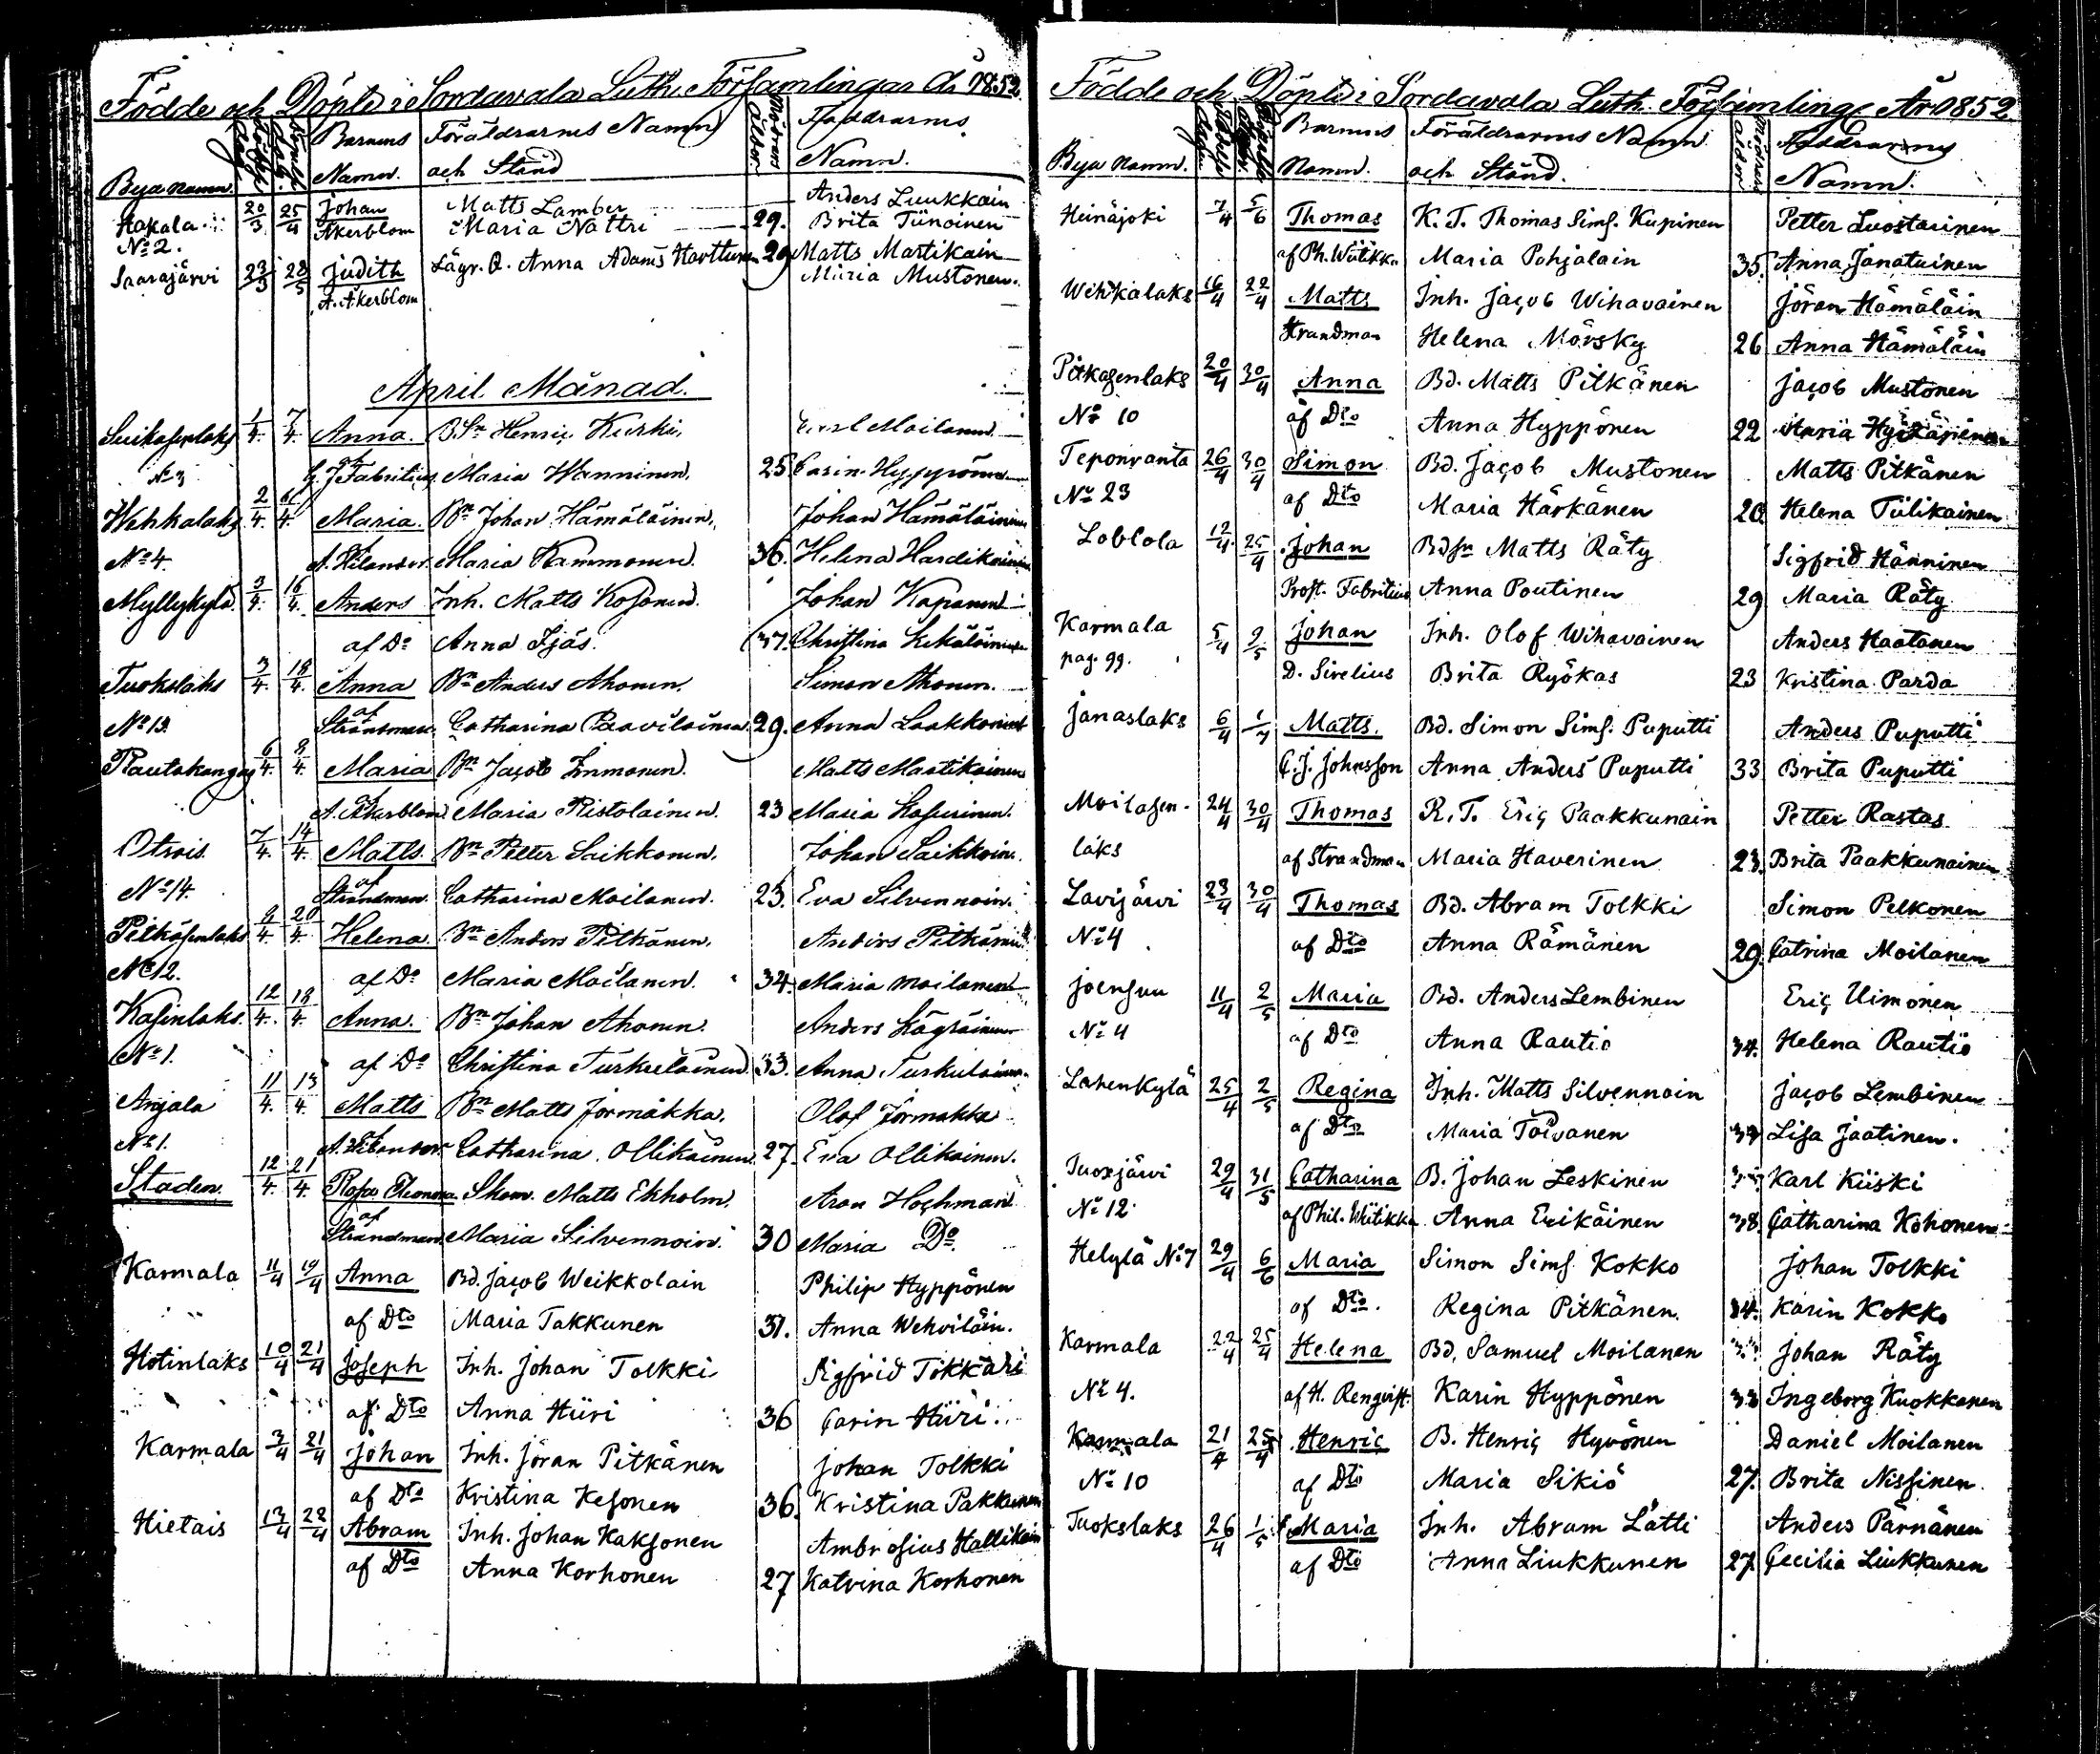 Födde och Döpte i Sordavala Luth. Församlingar År 1852.
Bya namn. Födelse dag. Döpelse dag. Barnens Namn. Föräldrarnes Namn och Stånd Modrens Ålder Faddrarnes Namn.
Hakala 20/3 25/4 Johan Matts Lamber Anders Luukkain
No 2. Åkerblom Maria Nättri 29. Brita Tiinoinen
Saarajärvi 23/3 28/5 Judith Lägr. Q. Anna Adams Harttunen 29 Matts Martikain
A. Åkerblom Maria Mustonen.
April Månad.
Suikasenlaks 1/4. 7/4. Anna. B.Sn Henric Kurki, Moilanen
No 3 af G. J. Fabritius Maria Hanninen, 25 Carin Hyppönen
Wehkalaks 2/4. 6/4. Maria. Bn Johan Hämäläinen, Johan Hämäläinen
No 4. A. Kilander. Maria Kammonen. 36. Helena Hardikainen
Myllykylä 3/4. 16/4. Anders Inh. Matts Kosonen. Johan Kaponen
af Do Anna Sjäs. 37. Christina Kekäläinen
Tuokslaks 3/4. 18/4. Anna Bn Anders Ahonen. Simon Ahonen.
No 13. af Strandman. Catharina Paavilainen. 29. Anna Laakkonen
Rautakangas 6/4. 8/4. Maria Bn Jacob Immonen. Matts Martikainen
A. Åkerblom Maria Ristolainen. 23 Maria Kasurinen.
Otrois 7/4. 14/4. Matts. Bn Petter Saikkonen. Johan Saikkoin.
No 14. af Strandman. Catharina Moilanen. 23. Eva Silvennoin.
Pitkäsenlaks 9/4. 20/4. Helena. Bn Anders Pitkänen. Anders Pitkänen
No 12. af Do Maria Moilanen. 34. Maria Moilanen
Kasinlaks. 12/4. 18/4. Anna. Bn Johan Ahonen. Anders Kägräinen
No 1. af Do Christina Turkulainen. 33. Anna Turkulainen.
Anjala 11/4. 13/4. Matts Bn Matts Jormakka. Olof Jormakka
No 1. A. Kilander. Catharina Ollikainen. 27. Eva Ollikainen.
Staden. 12/4. 21/4. Rosa Eleonora. Skom. Matts Ekholm. Aron Hochman
af Strandman. Maria Silvennoin. 30 Maria Do.
Karmala 11/4 19/4 Anna Bd. Jacob Weikkolain Philip Hyppönen
af Dto Maria Takkunen 31. Anna Wehviläin.
Hotinlaks 10/4 21/4 Joseph Inh. Johan Tolkki Sigfrid Tokkari
af Dto Anna Hiiri 36 Carin Hiiri
Karmala 3/4 21/4 Johan Inh. Jöran Pitkänen Johan Tolkki
af Dto Kristina Kesonen 36. Kristina Pakkunen
Hietais 13/4 22/4 Abram Inh. Johan Kaksonen Ambrosius Hallikain
af Dto Anna Korhonen 27 Katrina Korhonen
Födde och Döpte i Sordavala Luth. Församling År 1852
Bya namn. Födelse dagen Barnens Namn. Föräldrarnes Namn och Stånd. Modrens ålder Faddrarnes Namn.
Heinäjoki 7/4 5/6 Thomas K. T. Thomas Sims. Kupinen Petter Luostarinen
af Ph. Wiitikka Maria Pohjalain 35. Anna Janatuinen
Wehkalaks 16/4 22/4 Matts Inh. Jacob Wihavainen Jöran Hämäläin
Strandman Helena Mörsky 26 Anna Hämäläin
Pitkäsenlaks 20/4 30/4 Anna Bd. Matts Pitkänen Jacob Mustonen
No 10 af Dto Anna Hyppönen 22 Maria
Teponranta 26/4 30/4 Simon Bd. Jacob Mustonen Matts Pitkänen
No 23 af Dto Maria Härkänen 20. Helena Tiilikainen
Loblola 12/4. 25/4 Johan Bdsn Matts Räty Sigfrid Hänninen
Prost. Fabritius Anna Poutinen 29 Maria Räty
Karmala 5/4 9/5 Johan Inh. Olof Wihavainen Anders Haatanen
pag. 99. D. Sirelius Brita Ryökas 23 Kristina Parda
Janaslaks 6/4 1/7 Matts. Bd. Simon Sims. Puputti Anders Puputti
C. J. Johnsson Anna Anders Puputti 33 Brita Puputti
Moilasen- 24/4 30/4 Thomas R. T. Eric Paakkunain Petter Rastas
laks af Strandman Maria Haverinen 23. Brita Paakkunainen
Lavijärvi 23/4 30/4 Thomas Bd. Abram Tolkki Simon Pelkonen
No 4 af Dto Anna Rämänen 29. Catrina Moilanen
Joensuu 11/4 2/5 Maria Bd. Anders Lembinen Eric Uimonen
No 4 af Dto Anna Rautio 34. Helena Rautio
Lahenkylä 25/4 2/5 Regina Inh. Matts Silvennoin Jacob Lembinen
af Dto Maria Toivanen Lisa Jaatinen.
Tuoxjärvi 29/4 31/5 Catharina B. Johan Leskinen Karl Kiiski
No 12. af Phil. Wiitikka Anna Erikäinen 38. Catharina Kohonen
Helylä No 7 29/4 6/6 Maria Simon Sims. Kokko Johan Tolkki
af Dto. Regina Pitkänen. 34. Karin Kokko
Karmala 22/4 25/4 Helena Bd. Samuel Moilanen Johan Räty
No 4. af H. Renqvist. Karin Hyppönen 33 Ingeborg Kuokkanen
Karmala 21/4 25/4 Henric B. Henric Hyvönen Daniel Moilanen
No 10 af Dto Maria Sikiö 27. Brita Nissinen.
Tuokslaks 26/4 1/5 Maria Inh. Abram Lätti Anders Pärnänen
af Dto Anna Liukkunen 27 Cecilia Liukkunen